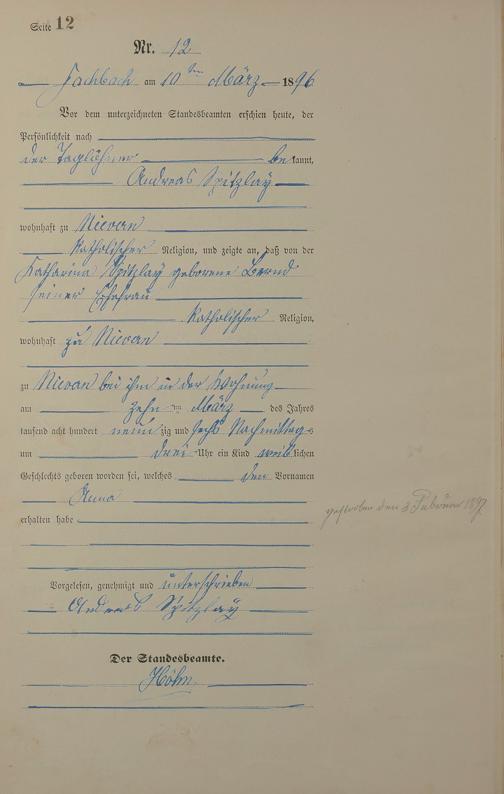 Seite 12
Nr. 12
Fachbach am 10 ten März 1896
Vor dem unterzeichneten Standesbeamten erschien heute, der
Persönlichkeit nach
der Taglöhner bekannt,
Andreas Spitzlay
wohnhaft zu Nievern
katholischer Religion, und zeigte an, daß von der
Katharina Spitzlay geborene Bernd
seiner Ehefrau
katholischer Religion,
wohnhaft zu Nievern
zu Nievern bei ihm in der Wohnung
am zehn ten März des Jahres
tausend acht hundert neunzig und sechs Nachmittags
um drei Uhr ein Kind weiblichen
Geschlechts geboren worden sei, welches den Vornamen
Anna
erhalten habe
gestorben den 3 Februar 1897
Vorgelesen, genehmigt und unterschrieben
Andreas Spitzlay
Der Standesbeamte.
Höhn